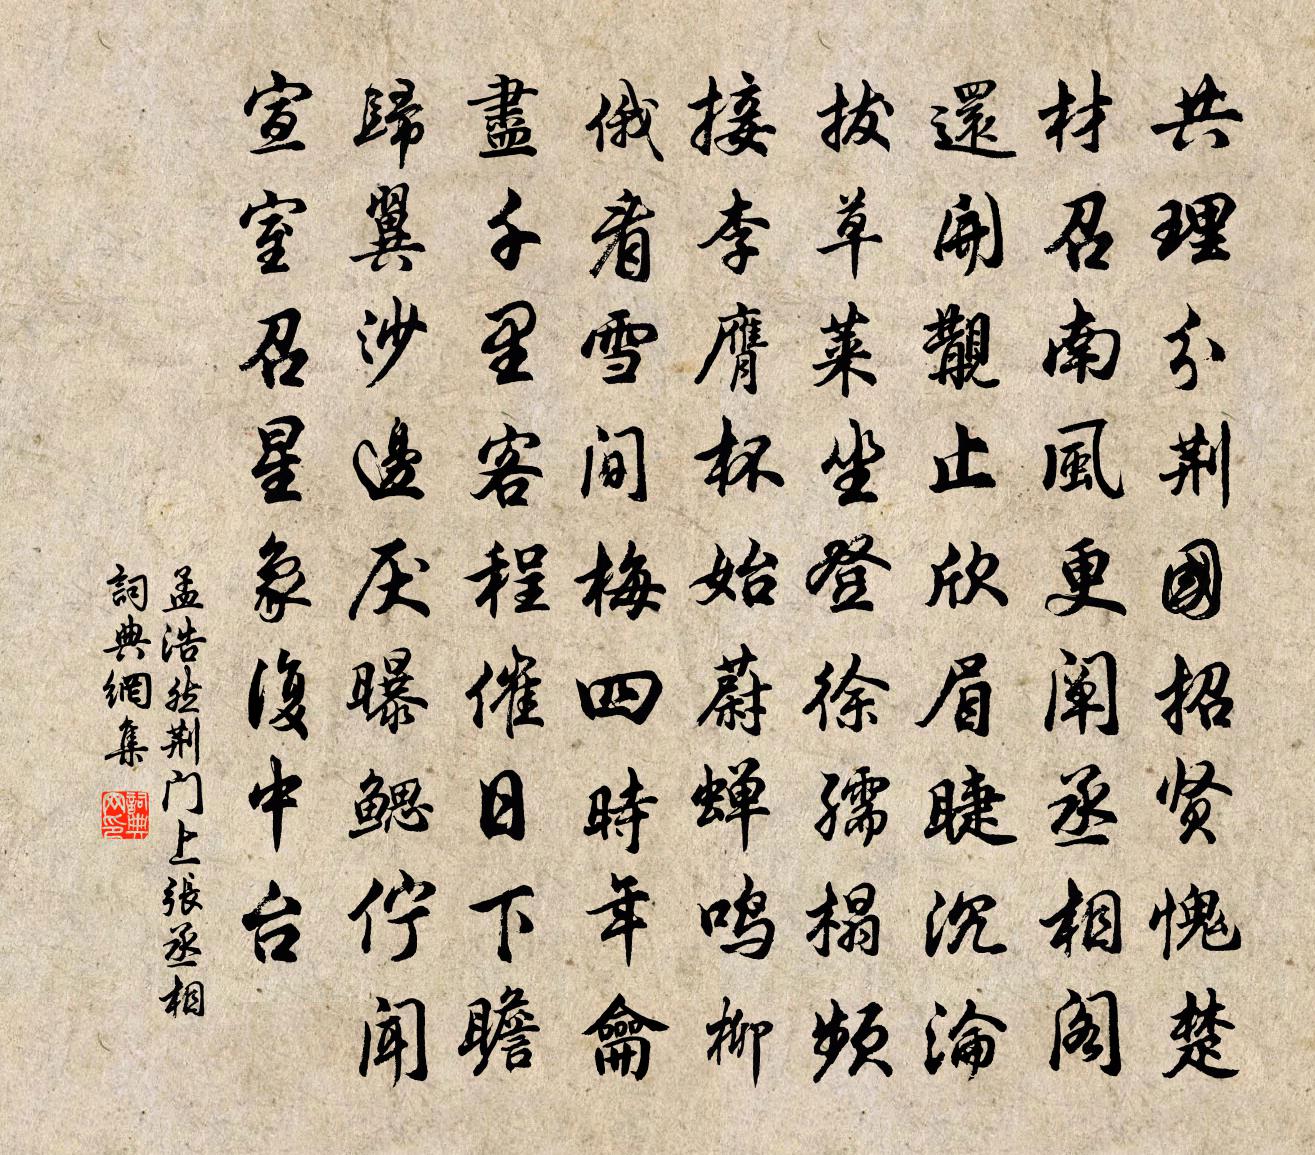 共理分荆國招贤愧楚
材召南風更阐丞相阁
還開覯止欣眉睫沉淪
拔草莱坐登徐孺榻频
接李膺杯始蔚蝉鸣柳
俄看雪间梅四時年龠
盡千里客程催日下瞻
歸翼沙邊厌曝鳃佇闻
宣室召星象復中台
孟浩然荆门上張丞相
詞典網集
詞典网印